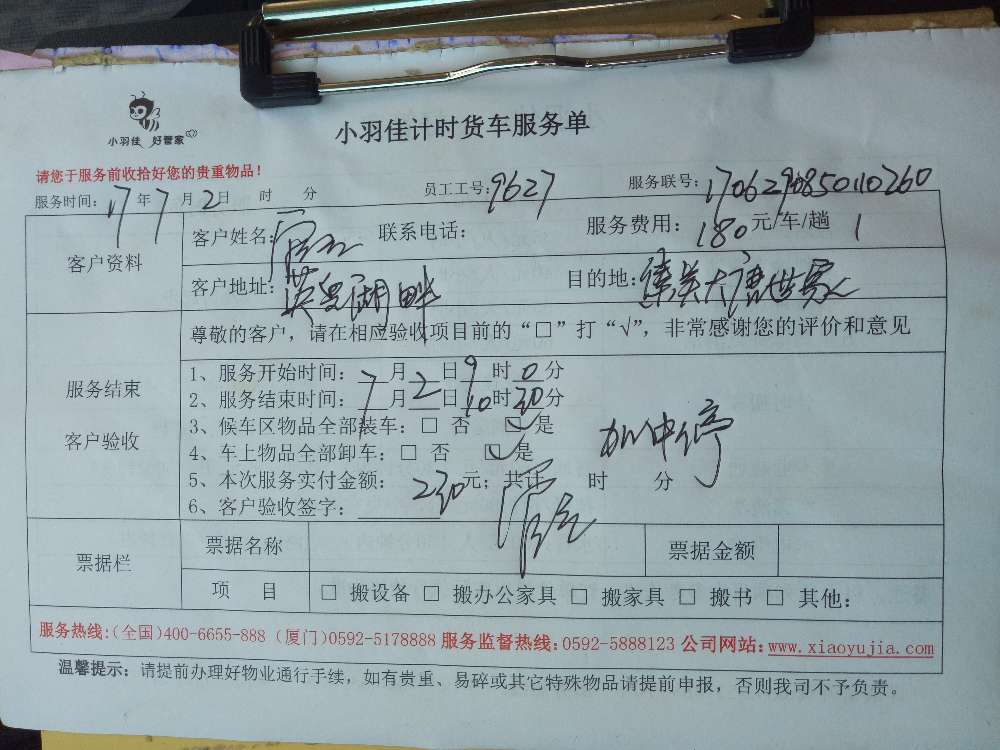 小羽佳 好管家
小羽佳计时货车服务单
请您于服务前收拾好您的贵重物品!
服务时间: 17 年 7 月 2 日 时 分 员工工号: 9627 服务联号: 1706290850110260
客户资料
客户姓名: 联系电话: 服务费用: 180 元/车/趟 1
客户地址: 湖畔 目的地: 集美大唐世家
尊敬的客户,请在相应验收项目前的“□”打“√”,非常感谢您的评价和意见
服务结束
客户验收
1、服务开始时间: 7 月 2 日 9 时 0 分
2、服务结束时间: 7 月 2 日 10 时 30 分
3、候车区物品全部装车: □ 否 ☑ 是
4、车上物品全部卸车: □ 否 ☑ 是
加中停
5、本次服务实付金额: 230 元; 共计 时 分
6、客户验收签字:
票据栏
票据名称 票据金额
项 目 □ 搬设备 □ 搬办公家具 □ 搬家具 □ 搬书 □ 其他:
服务热线:(全国)400-6655-888 (厦门)0592-5178888 服务监督热线:0592-5888123 公司网站:www.xiaoyujia.com
温馨提示: 请提前办理好物业通行手续,如有贵重、易碎或其它特殊物品请提前申报,否则我司不予负责。